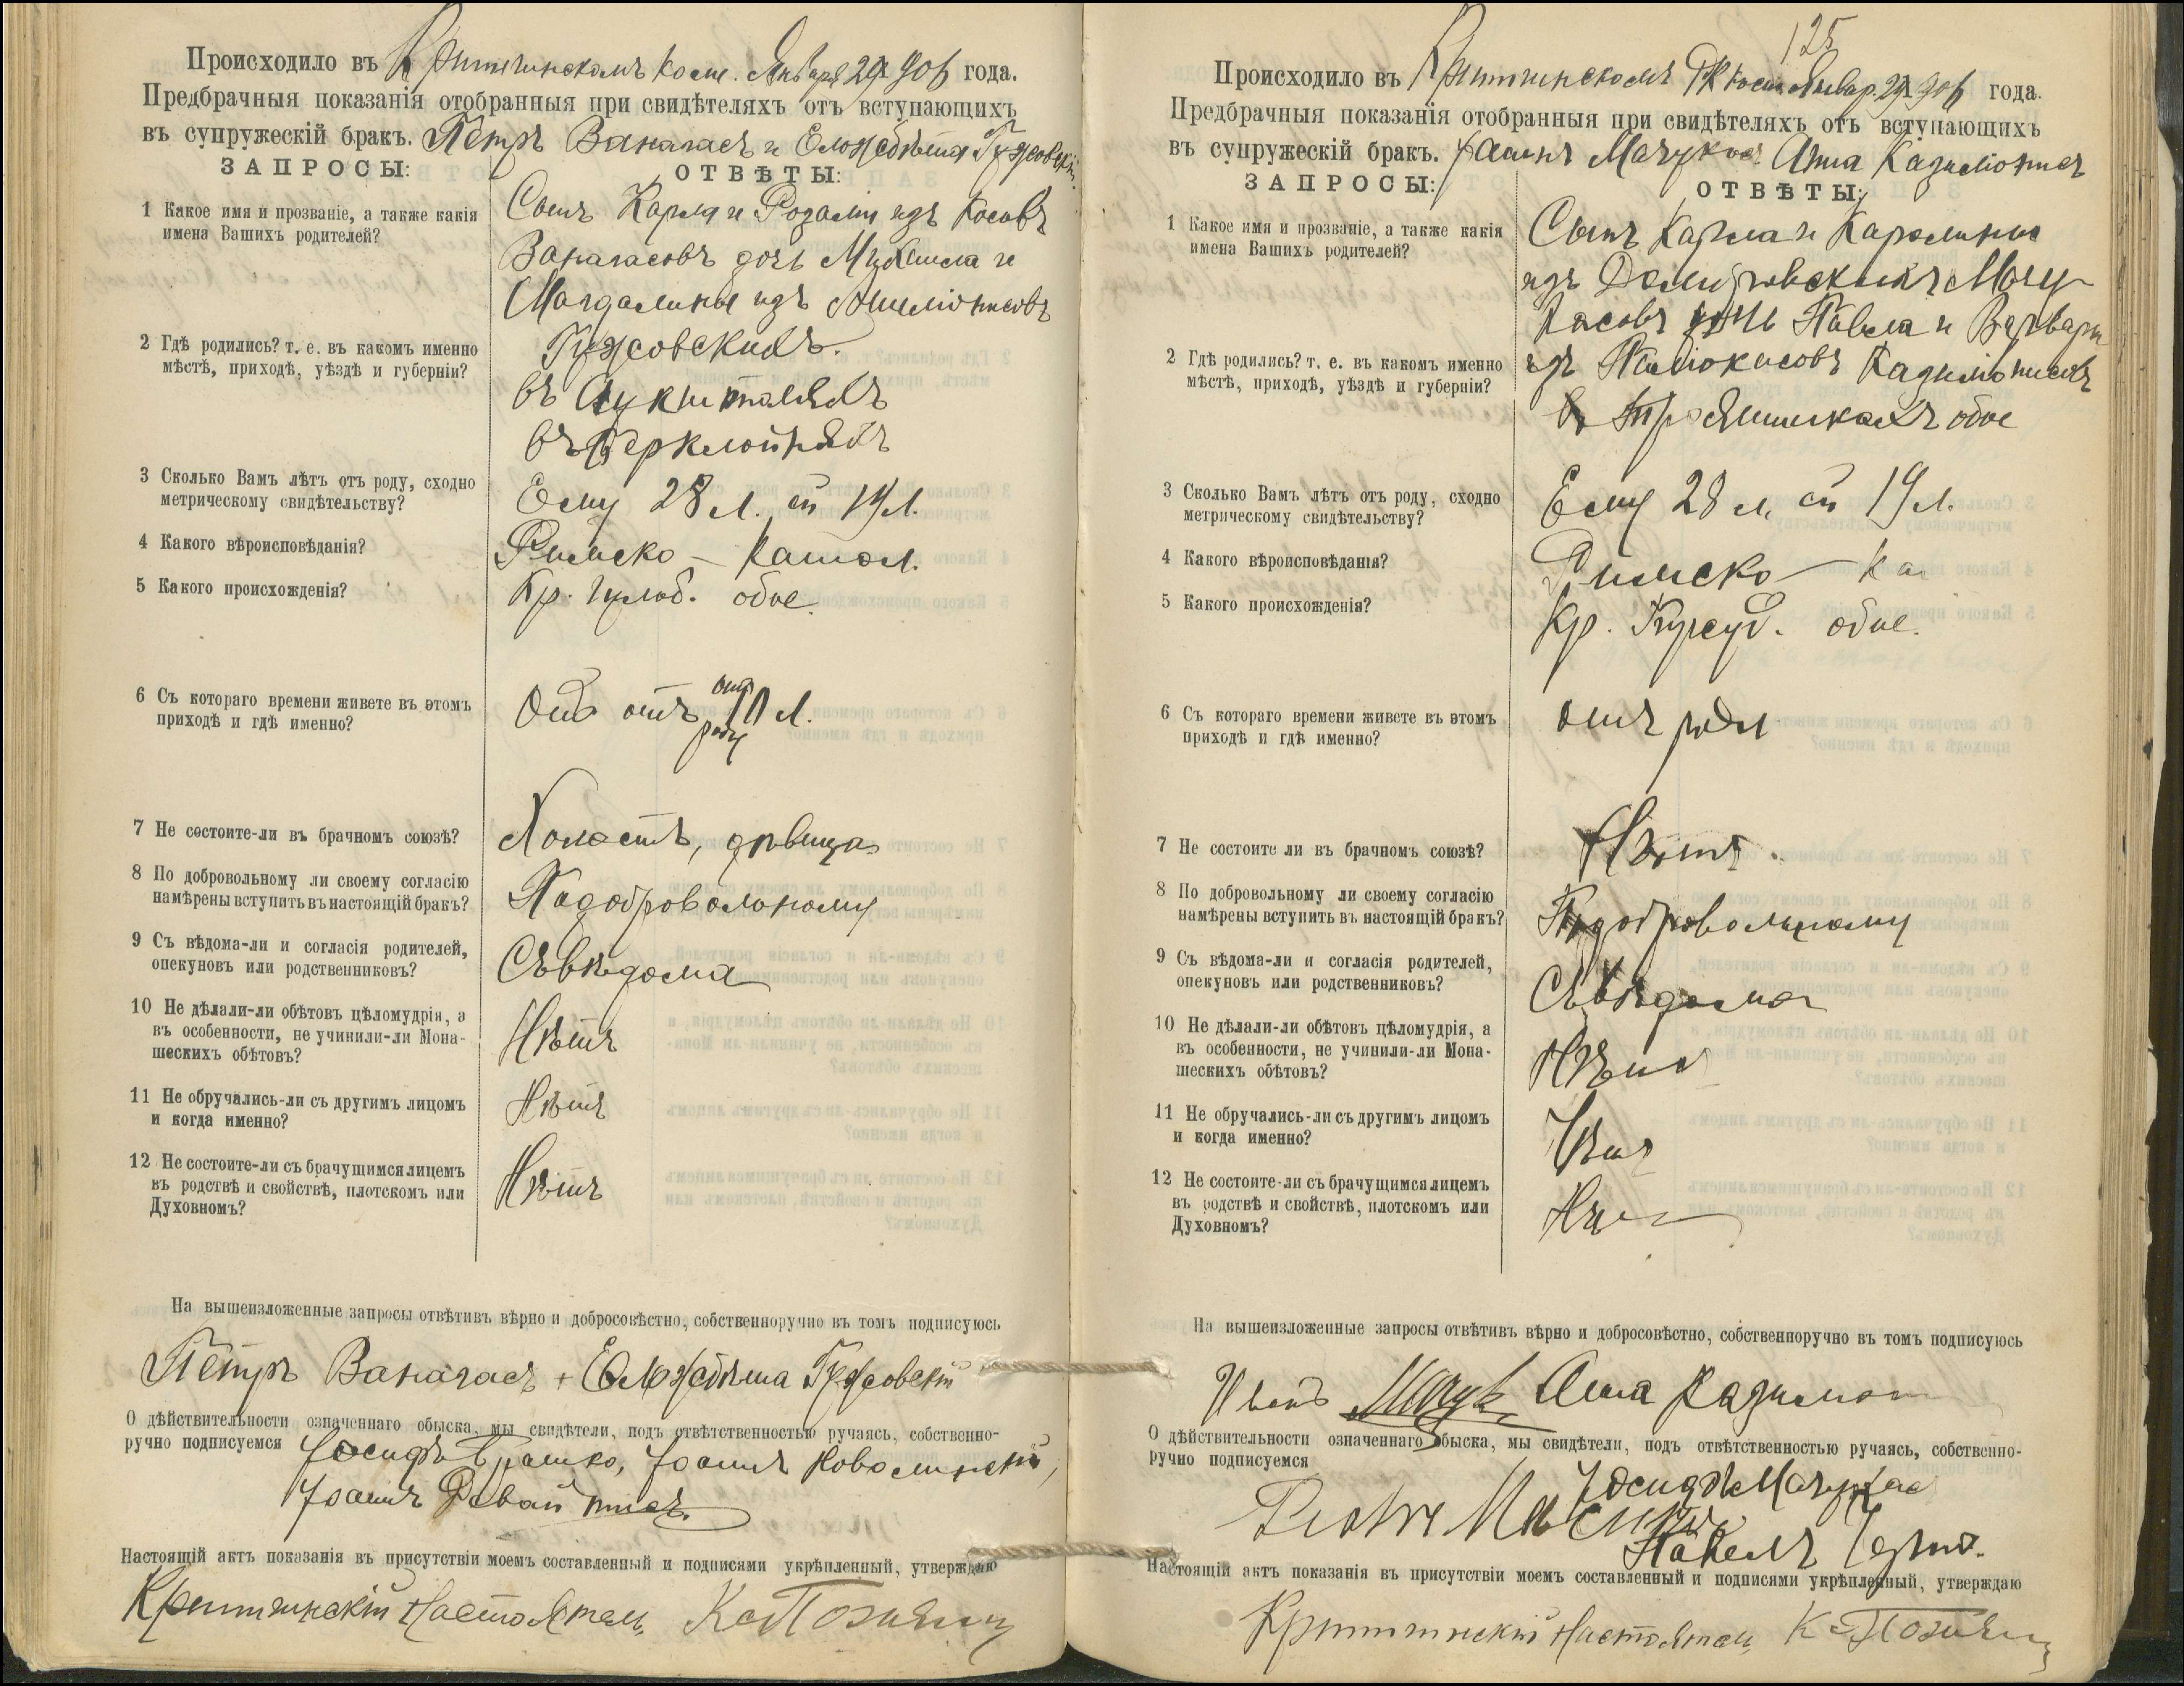 Происходило въ Криттинскомъ кост. Января 29 1906 года.
Предбрачныя показанія отобранныя при свидѣтеляхъ отъ вступающихъ
въ супружескій бракъ. Петръ Ванагасъ и Гужовск
ЗАПРОСЫ:
ОТВѢТЫ:
1 Какое имя и прозваніе, а также какія
имена Вашихъ родителей?
Сынъ Карла и Розаліи изъ
Ванагасовъ дочь Михаила и
Магдалины изъ
Гужовскихъ.
2 Гдѣ родились? т. е. въ какомъ именно
мѣстѣ, приходѣ, уѣздѣ и губерніи?
въ
въ
3 Сколько Вамъ лѣтъ отъ роду, сходно
метрическому свидѣтельству?
Ему 28 л. ей 19 л.
4 Какого вѣроисповѣданія?
Римско - катол.
5 Какого происхожденія?
Кр. обое.
6 Съ котораго времени живете въ этомъ
приходѣ и гдѣ именно?
отъ 10 л.
роду
7 Не состоите-ли въ брачномъ союзѣ?
Холостъ, дѣвица
8 По добровольному ли своему согласію
намѣрены вступить въ настоящій бракъ?
Подобровольному
9 Съ вѣдома-ли и согласія родителей,
опекуновъ или родственниковъ?
Съ вѣдома
10 Не дѣлали-ли обѣтовъ цѣломудрія, а
въ особенности, не учинили-ли Мона-
шескихъ обѣтовъ?
Нѣтъ
11 Не обручались-ли съ другимъ лицомъ
и когда именно?
Нѣтъ
12 Не состоите-ли съ брачущимся лицемъ
въ родствѣ и свойствѣ, плотскомъ или
Духовномъ?
Нѣтъ
На вышеизложенные запросы отвѣтивъ вѣрно и добросовѣстно, собственноручно въ томъ подписуюсь
Петръ Ванагасъ +
О дѣйствительности означеннаго обыска, мы свидѣтели, подъ отвѣтственностью ручаясь, собственно-
ручно подписуемся Іосифъ Іоаннъ
Іоаннъ
Настоящій актъ показанія въ присутствіи моемъ составленный и подписями укрѣпленный, утверждаю
Криттинскій Настоятель
125
Происходило въ Криттинскомъ РК кост. Январ. 29 1906 года.
Предбрачныя показанія отобранныя при свидѣтеляхъ отъ вступающихъ
въ супружескій бракъ. Іоаннъ Анна
ЗАПРОСЫ:
ОТВѢТЫ:
1 Какое имя и прозваніе, а также какія
имена Вашихъ родителей?
Сынъ Карла и Каролины
изъ Домбровскихъ Мачу-
касовъ дочь Павла и Варвары
изъ
2 Гдѣ родились? т. е. въ какомъ именно
мѣстѣ, приходѣ, уѣздѣ и губерніи?
обое
3 Сколько Вамъ лѣтъ отъ роду, сходно
метрическому свидѣтельству?
Ему 28 л. ей 19 л.
4 Какого вѣроисповѣданія?
Римско - ка
5 Какого происхожденія?
Кр. обое.
6 Съ котораго времени живете въ этомъ
приходѣ и гдѣ именно?
отъ роду
7 Не состоите ли въ брачномъ союзѣ?
Нѣтъ.
8 По добровольному ли своему согласію
намѣрены вступить въ настоящій бракъ?
Подобровольному
9 Съ вѣдома-ли и согласія родителей,
опекуновъ или родственниковъ?
Съ вѣдома
10 Не дѣлали-ли обѣтовъ цѣломудрія, а
въ особенности, не учинили-ли Мона-
шескихъ обѣтовъ?
Нѣтъ
11 Не обручались-ли съ другимъ лицомъ
и когда именно?
Нѣтъ
12 Не состоите-ли съ брачущимся лицемъ
въ родствѣ и свойствѣ, плотскомъ или
Духовномъ?
Нѣт
На вышеизложенные запросы отвѣтивъ вѣрно и добросовѣстно, собственноручно въ томъ подписуюсь
Иванъ Анна
О дѣйствительности означеннаго обыска, мы свидѣтели, подъ отвѣтственностью ручаясь, собственно-
ручно подписуемся
Іосифъ Мачукас
Павелъ
Настоящій актъ показанія въ присутствіи моемъ составленный и подписями укрѣпленный, утверждаю
Криттинскій Настоятель